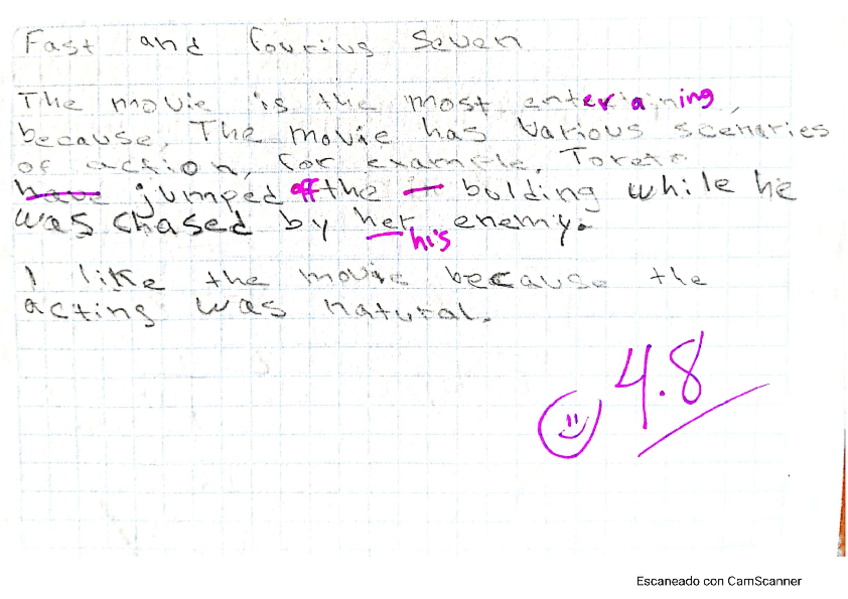 Fast and Fourius Seven
The movie is the most enteraining,
because, The movie has Various scenaries
of action, for example, Toreto
have jumped off the bolding while he
was chased by her his enemy.
I like the movie because the
acting was natural.
4.8
Escaneado con CamScanner